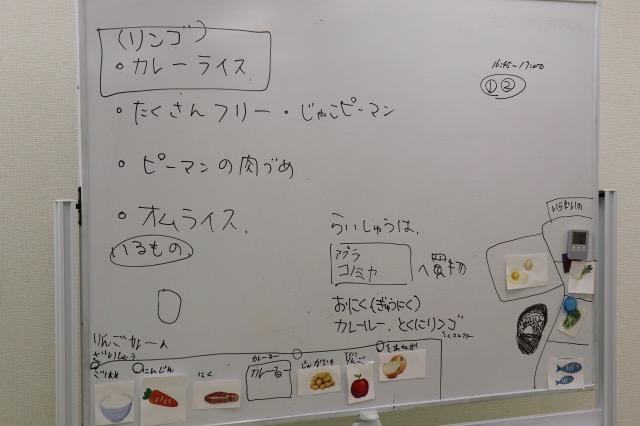 (リンゴ)
・カレーライス.
16:45-17:00
① ②
・たくさんフリー・じゃこピーマン
・ピーマンの肉づめ
・オムライス.
いるもの
らいしゅうは、
アプラ
コノミヤ
へ買物
おにく(ぎゅうにく)
カレールー、とくにリンゴ
りんごカレー
ごはん
にんじん
にく
カレーるー
じゃがいも
りんご
たまねぎ